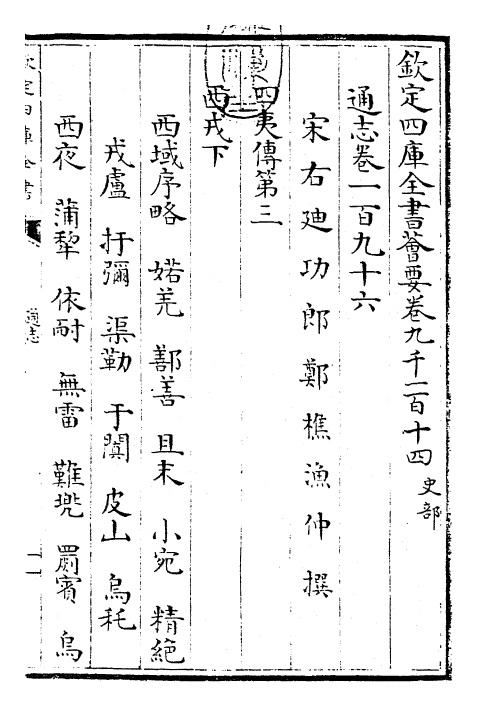 欽定四庫全書薈要卷九千二百十四 史部
通志卷一百九十六
宋右廸功郎鄭樵漁仲撰
四夷傳第三
西戎下
西域序略 婼羌 鄯善 且末 小宛 精絕
戎盧 扜彌 渠勒 于闐 皮山 烏秅
西夜 蒲犂 依耐 無雷 難兠 罽賓 烏
欽定四庫全書
通志
一